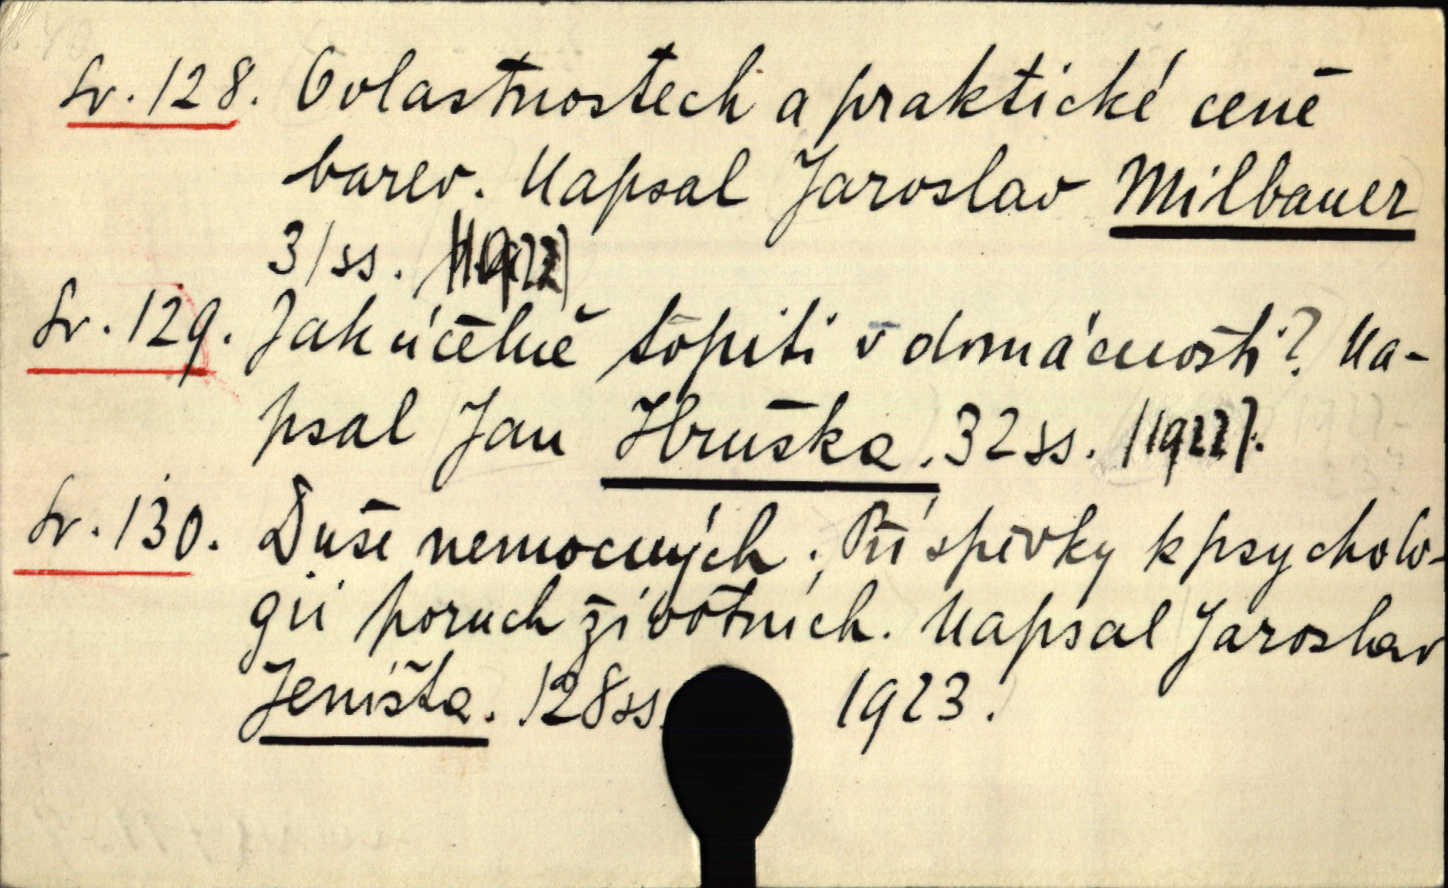 Sv. 128. O vlastnostech a praktické ceně
barev. Napsal Jaroslav Milbauer
31 ss. [1922]
Sv. 129. Jak účelně topiti v domácnosti? Na-
psal Jan Hruška. 32 ss. [1922].
Sv. 130. Duše nemocných; Příspěvky k psycholo-
gii poruch životních. Napsal Jaroslav
Jeništa. 128 ss. 1923.